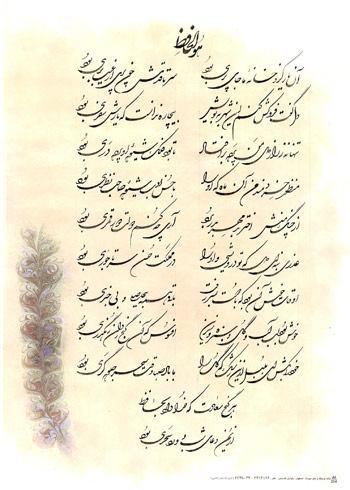 هو الحافظ
آن یار کزو خانه ما جای پری بود سر تا قدمش چون پری از عیب بری بود
دل گفت فروکش کنم این شهر به بویش بیچاره ندانست که یارش سفری بود
تنها نه ز راز دل من پرده برافتاد تا بود فلک شیوه او پرده دری بود
منظور خردمند من آن ماه که او را با حسن ادب شیوه صاحب نظری بود
از چنگ منش اختر بدمهر بدر برد آری چه کنم دولت دور قمری بود
عذری بنه ای دل که تو درویشی و او را در مملکت حسن سر تاجوری بود
اوقات خوش آن بود که با دوست بسر رفت باقی همه بی حاصلی و بی خبری بود
خوش بود لب آب و گل و سبزه و نسرین افسوس که آن گنج روان رهگذری بود
خود را بکش ای بلبل ازین رشک که گل را با باد صبا وقت سحر جلوه گری بود
هر گنج سعادت که خدا داد بحافظ
از یمن دعای شب و ورد سحری بود